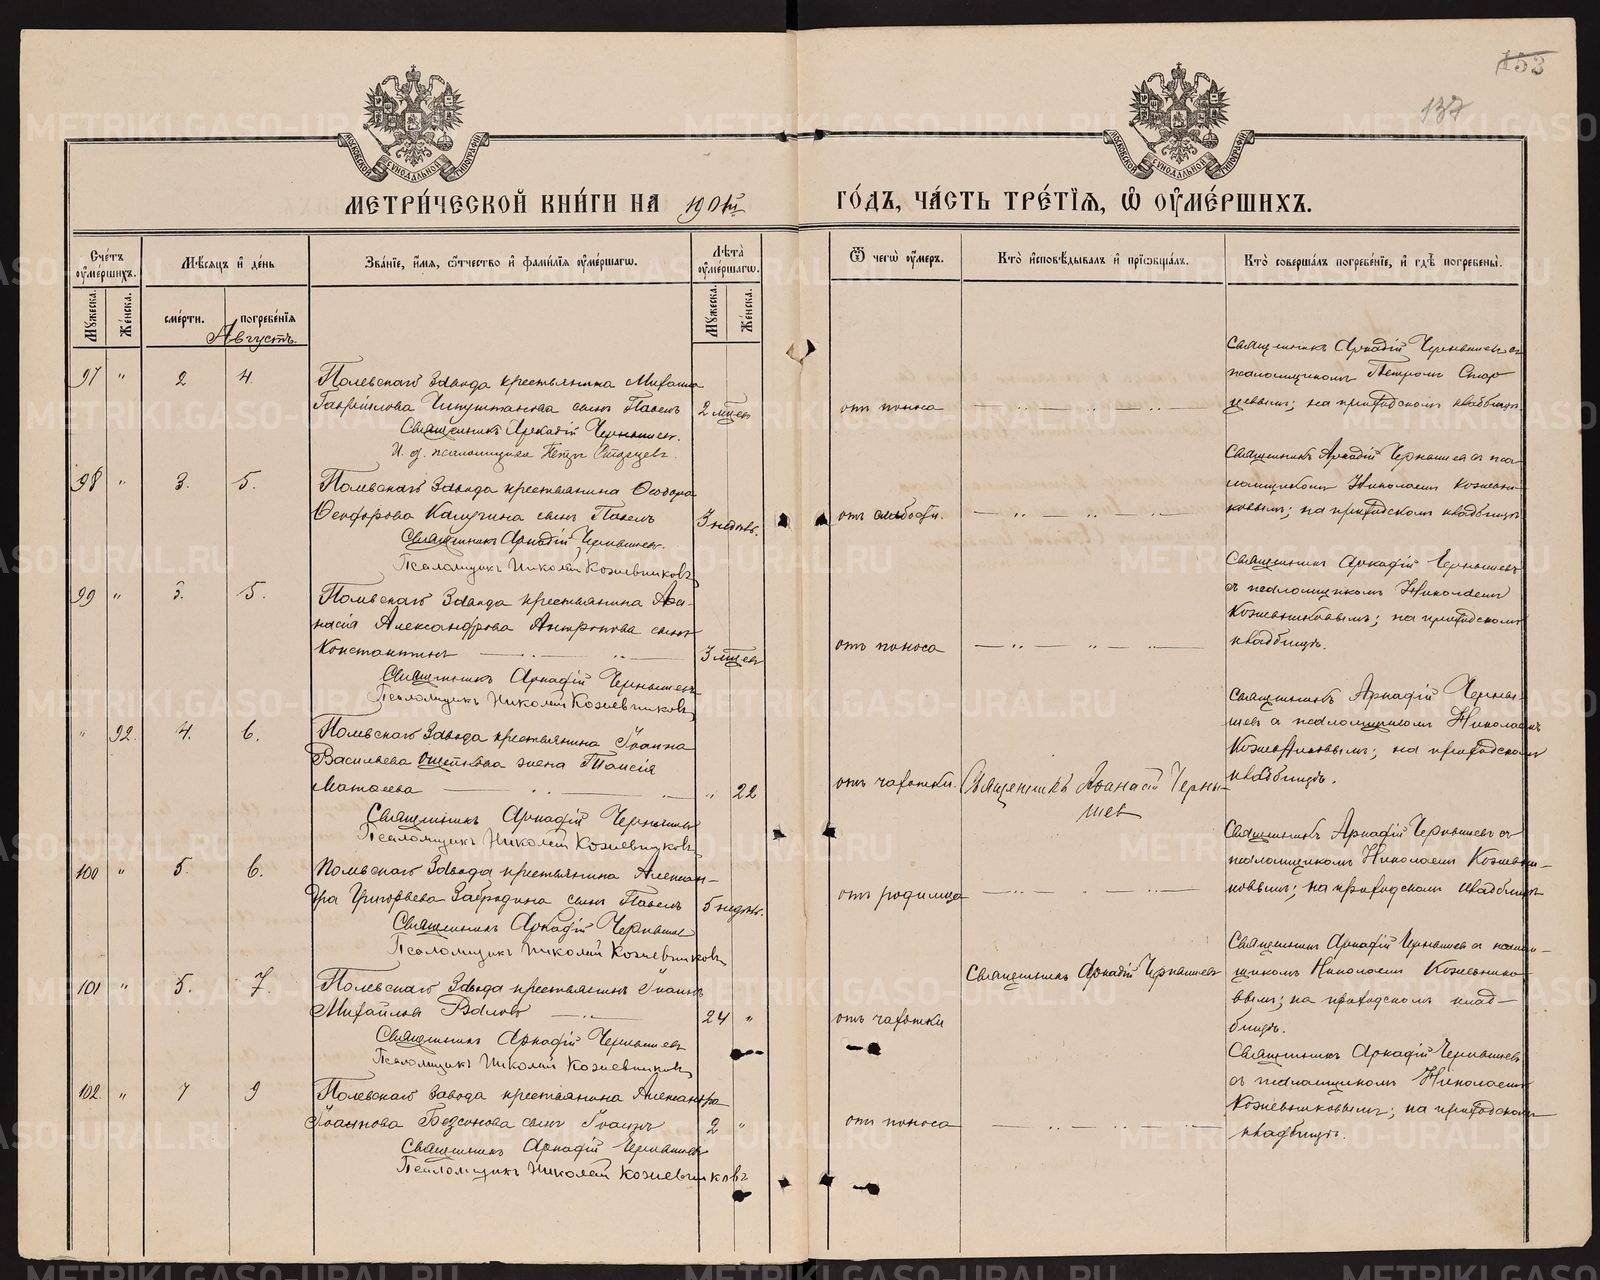 153
137
МОСКОВСКОЙ СѴНОДАЛЬНОЙ ТИПОГРАФІИ
МОСКОВСКОЙ СѴНОДАЛЬНОЙ ТИПОГРАФІИ
МЕТРИ́ЧЕСКОЙ КНИ́ГИ НА 1901й ГО́ДЪ, ЧА́СТЬ ТРЕ́ТЇѦ, Ѡ҆ ОУ҆МЕ́РШИХЪ.
Сче́тъ оу҆ме́ршихъ.
Мѣ́сѧцъ и҆ де́нь
Зва́нїе, и҆́мѧ, ѻ҆́тчество и҆ фами́лїѧ оу҆ме́ршагѡ.
Лѣ̀та оу҆ме́ршагѡ.
Ѿ чегѡ̀ оу҆́меръ.
Кто̀ и҆сповѣ́дывалъ и҆ прїѡбща́лъ.
Кто̀ соверша́лъ погребе́нїе, и҆ гдѣ̀ погребены̀.
Мꙋ́жеска.
Же́нска.
сме́рти.
погребе́нїѧ
Мꙋ́жеска.
Же́нска.
Августъ.
97 " 2 4.
Полевскаго Завода крестьянина Михаила
Гавріилова сынъ Павелъ 2 мѣсе
Священникъ Аркадій Чернышевъ.
И. д. псаломщика Петръ Старцевъ.
отъ поноса
Священникъ Аркадій Чернышевъ съ
псаломщикомъ Петромъ Стар
цевымъ; на приходскомъ кладбищѣ
98 " 3. 5.
Полевскаго Завода крестьянина Ѳеодора
Ѳеодорова Калугина сынъ Павелъ 3 недѣль.
Священникъ Аркадій Чернышевъ.
Псаломщикъ Николай Кожевниковъ
отъ слабости.
Священникъ Аркадій Чернышевъ съ пса
ломщикомъ Николаемъ Кожевни
ковымъ; на приходскомъ кладбищѣ
99 " 3. 5.
Полевскаго Завода крестьянина Аѳа-
насія Александрова Антропова сынъ
Константинъ 3 мѣсе
Священникъ Аркадій Чернышевъ
Псаломщикъ Николай Кожевниковъ
отъ поноса
Священникъ Аркадій Чернышевъ
съ псаломщикомъ Николаемъ
Кожевниковымъ; на приходскомъ
кладбищѣ.
" 92. 4. 6.
Полевскаго Завода крестьянина Іоанна
Васильева жена Таисія
Матѳеева " 22
Священникъ Аркадій Чернышевъ
Псаломщикъ Николай Кожевниковъ
отъ чахотки.
Священникъ Чернышевъ
Священникъ Аркадій Черны-
шевъ съ псаломщикомъ Николаемъ
Кожевниковымъ; на приходскомъ
кладбищѣ.
100 " 5. 6.
Полевскаго Завода крестьянина Алексан-
дра Григорьева Забродина сынъ Павелъ 5 недѣль.
Священникъ Аркадій Чернышевъ
Псаломщикъ Николай Кожевниковъ
отъ родимца
Священникъ Аркадій Чернышевъ съ
псаломщикомъ Николаемъ Кожевни-
ковымъ; на приходскомъ кладбищѣ
101 " 5. 7.
Полевскаго Завода крестьянинъ Іоаннъ
Михайловъ 24 "
Священникъ Аркадій Чернышевъ
Псаломщикъ Николай Кожевниковъ
отъ чахотки
Священникъ Аркадій Чернышевъ
Священникъ Аркадій Чернышевъ съ псалом-
щикомъ Николаемъ Кожевнико-
вымъ; на приходскомъ клад-
бищѣ.
102. " 7 9
Полевскаго Завода крестьянина Александра
Іоаннова Безсонова сынъ Іоаннъ 2 "
Священникъ Аркадій Чернышевъ
Псаломщикъ Николай Кожевниковъ
отъ поноса
Священникъ Аркадій Чернышевъ
съ псаломщикомъ Николаемъ
Кожевниковымъ; на приходскомъ
кладбищѣ.
METRIKI.GASO-URAL.RU